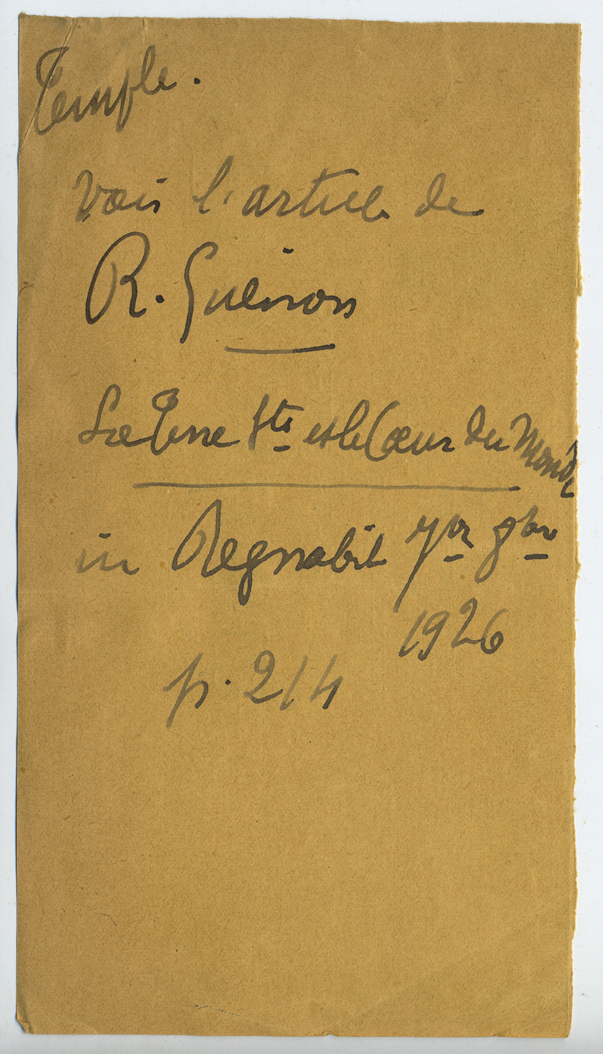 Temple.
Voir l'article de
R. Guénon
La Terre Ste et le Cœur du Monde
in Regnabit 7bre 8bre
1926
p. 214